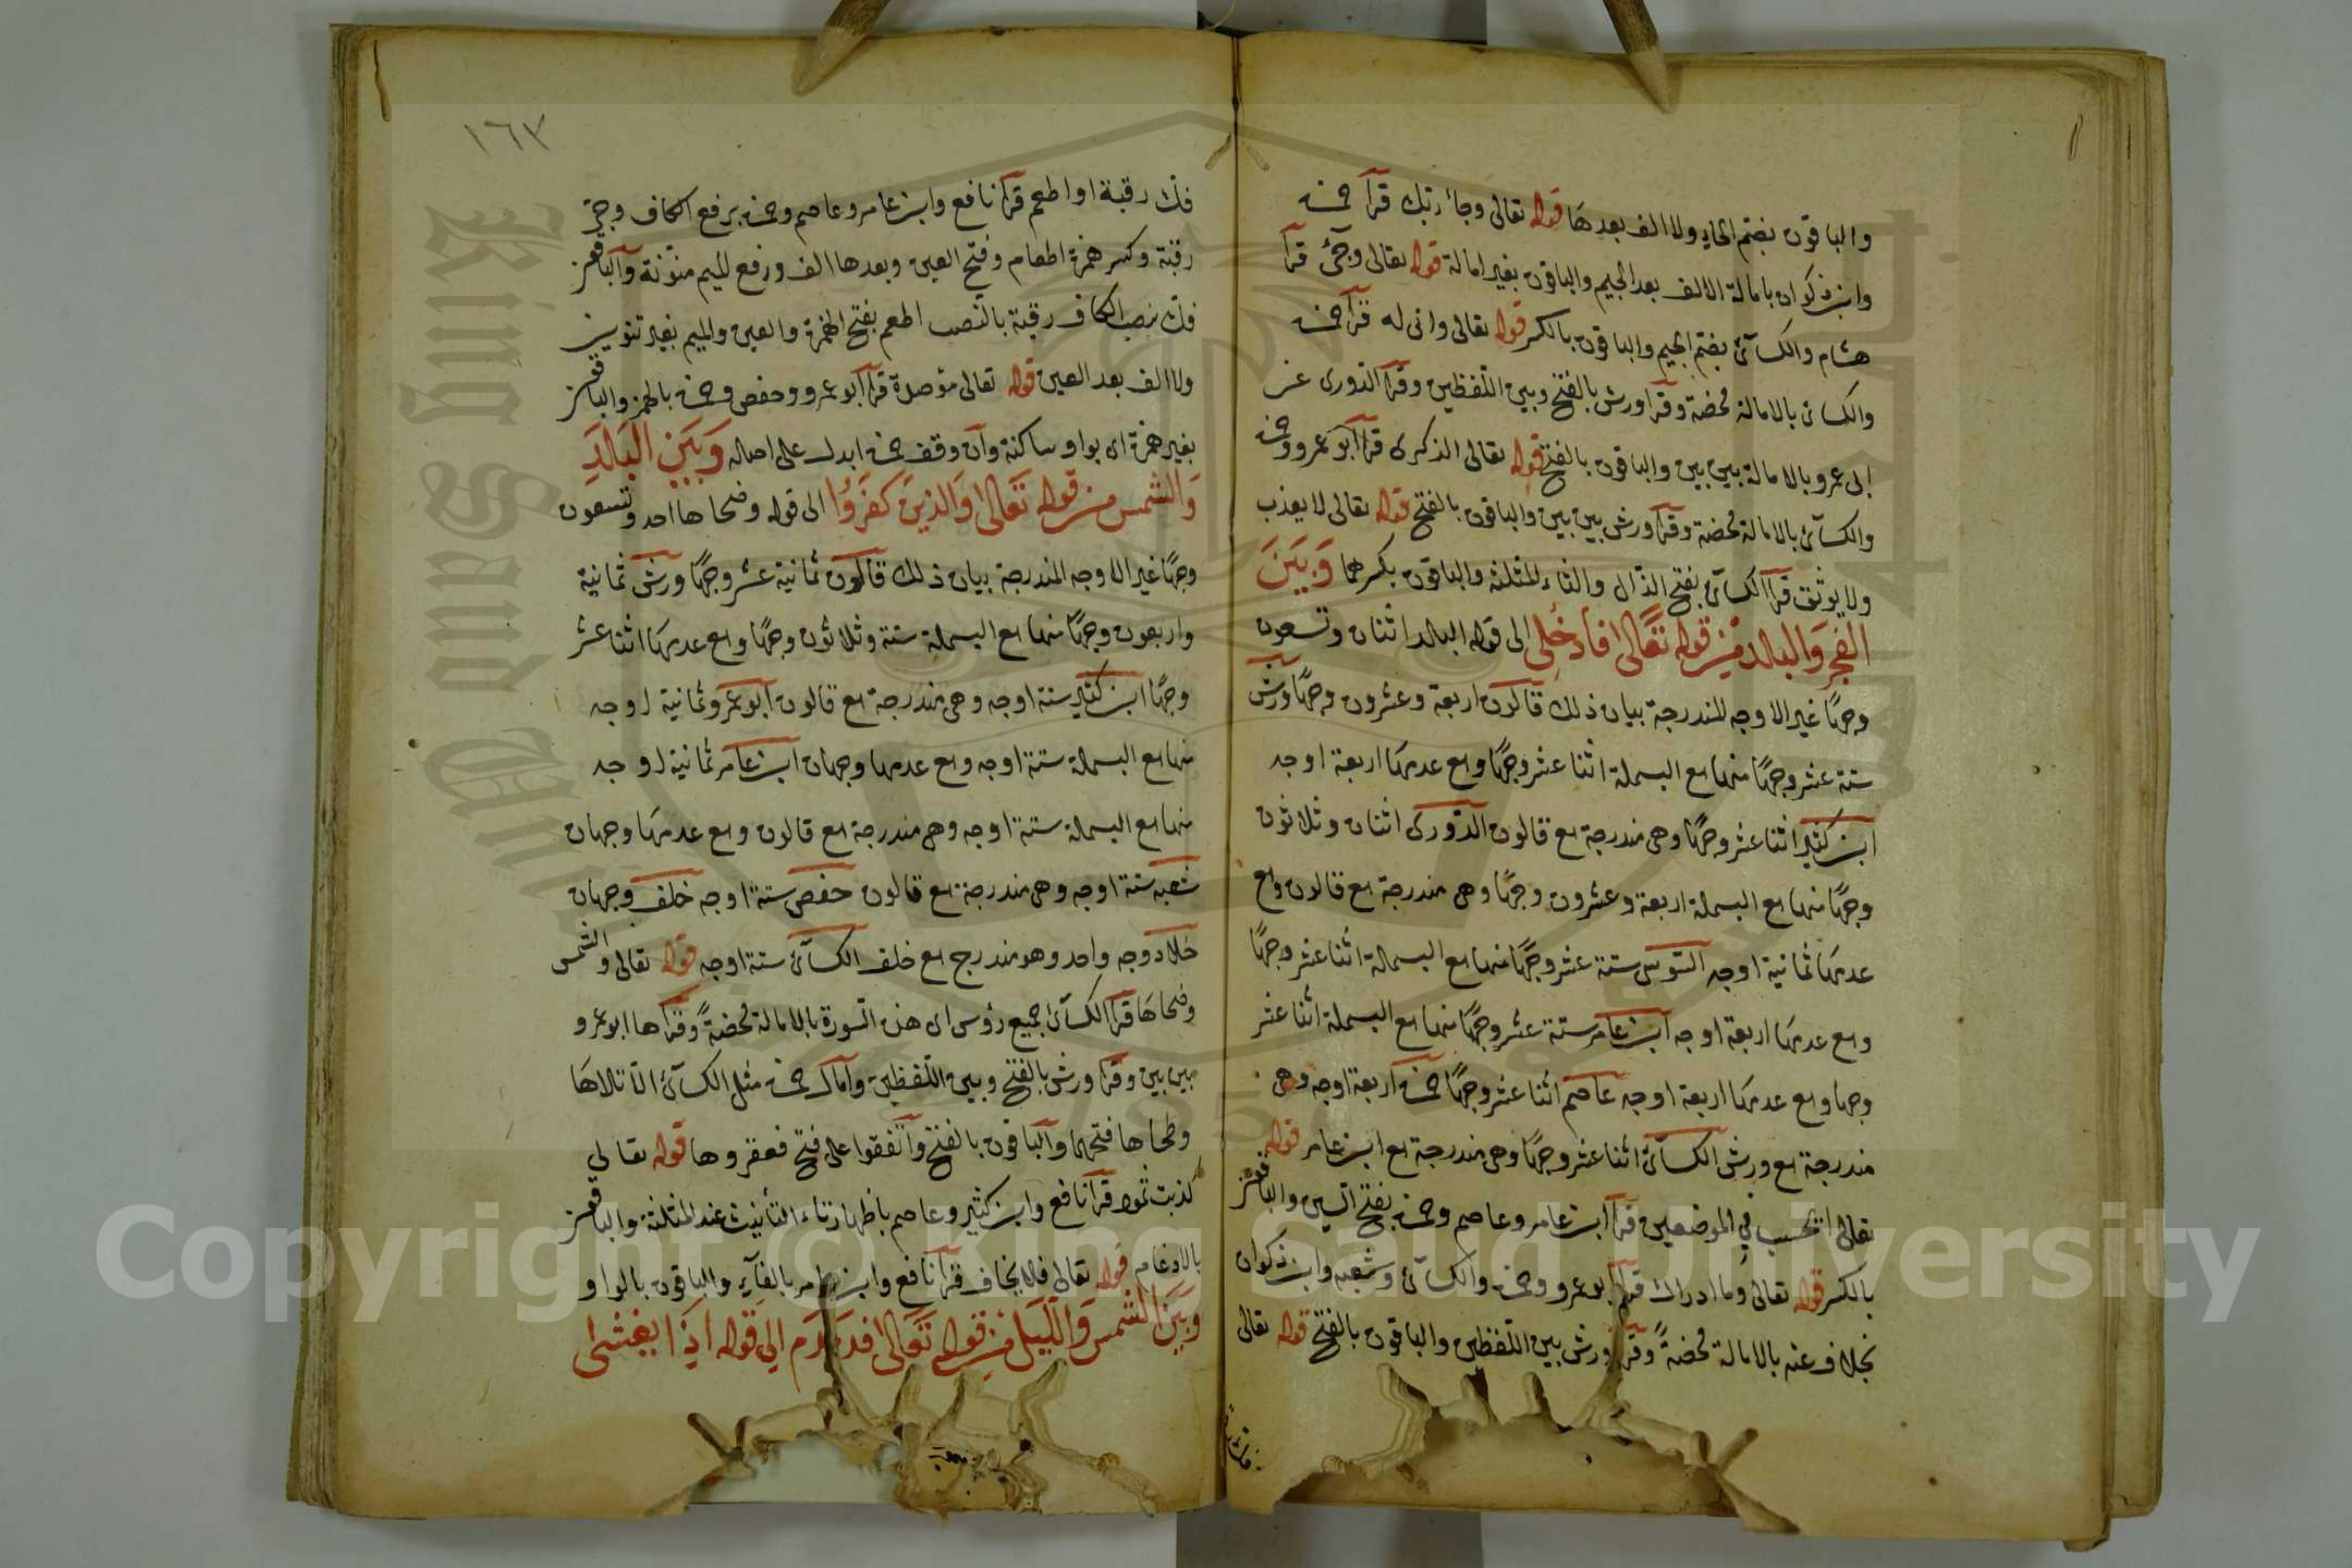 والباقون بضم الحاء ولا الف بعدها قوله تعالى وجاء ربك قرا حمزه
وابن ذكوان بامالة الالف بعد الجيم والباقون بغير امالة قوله تعالى وجئ قرا
هشام والكسائى بضم الجيم والباقون بالكسر قوله تعالى وانى له قرا حمزه
والكسائى بالامالة محضة وقرا ورش بالفتح وبين اللفظين وقرا الدورى عن
ابى عمرو بالامالة بين بين والباقون بالفتح قوله تعالى الذكرى قرا ابو عمرو وحمزه
والكسائى بالامالة محضة وقرا ورش بين بين والباقون بالفتح قوله تعالى لا يعذب
ولا يوثق قرا الكسائى بفتح الذال والثاء المثلثة والباقون بكسرهما وبين
الفجر والبلد من قوله تعالى فادخلى الى قوله البلد اثنان وتسعون
وجها غير الاوجه المندرجة بيان ذلك قالون اربعة وعشرون وجها ورش
ستة عشر وجها منها مع البسملة اثنا عشر وجها ومع عدمها اربعة اوجه
ابن كثير اثنا عشر وجها وهى مندرجة مع قالون الدورى اثنان وثلاثون
وجها منها مع البسملة اربعة وعشرون وجها وهى مندرجة مع قالون ومع
عدمها ثمانية اوجه السوسى ستة عشر وجها منها مع البسملة اثنا عشر وجها
ومع عدمها اربعة اوجه ابن عامر ستة عشر وجها منها مع البسملة اثنا عشر
وجها ومع عدمها اربعة اوجه عاصم اثنا عشر وجها حمزه اربعة اوجه وهى
مندرجة مع ورش الكسائى اثنا عشر وجها وهى مندرجة مع ابن عامر قوله
تعالى ايحسب فى الموضعين قرا ابن عامر وعاصم وحمزه بفتح السين والباقون
بالكسر قوله تعالى وما ادراك قرا ابو عمرو وحمزه والكسائى وشعبه وابن ذكوان
بخلاف عنه بالامالة محضة وقرا ورش بين اللفظين والباقون بالفتح قوله تعالى
١٦٣
فك رقبة او اطعم قرا نافع وابن عامر وعاصم وحمزه برفع الكاف وجر
رقبة وكسر همزة اطعام وفتح العين وبعدها الف ورفع الميم منونة والباقون
فك بنصب الكاف رقبة بالنصب اطعم بفتح الهمزة والعين والميم بغير تنوين
ولا الف بعد العين قوله تعالى مؤصدة قرا ابو عمرو وحفص وحمزه بالهمز والباقون
بغير همزة اى بواو ساكنة وان وقف حمزه ابدل على اصله وبين البلد
والشمس من قوله تعالى والذين كفروا الى قوله وضحاها احد وتسعون
وجها غير الاوجه المندرجة بيان ذلك قالون ثمانية عشر وجها ورش ثمانية
واربعون وجها منها مع البسملة ستة وثلاثون وجها ومع عدمها اثنا عشر
وجها ابن كثير ستة اوجه وهى مندرجة مع قالون ابو عمرو ثمانية اوجه
منها مع البسملة ستة اوجه ومع عدمها وجهان ابن عامر ثمانية اوجه
منها مع البسملة ستة اوجه وهى مندرجة مع قالون ومع عدمها وجهان
شعبه ستة اوجه وهى مندرجة مع قالون حفص ستة اوجه خلف وجهان
خلاد وجه واحد وهو مندرج مع خلف الكسائى ستة اوجه قوله تعالى والشمس
وضحاها قرا الكسائى جميع رؤس اى هذه السورة بالامالة محضة وقراها ابو عمرو
بين بين وقرا ورش بالفتح وبين اللفظين وامال حمزه مثل الكسائى الا تلاها
وطحاها فتحهما والباقون بالفتح واتفقوا على فتح فعقروها قوله تعالى
كذبت ثمود قرا نافع وابن كثير وعاصم باظهار تاء التأنيث عند المثلثة والباقون
بالادغام قوله تعالى فلا يخاف قرا نافع وابن عامر بالفاء والباقون بالواو
وبين الشمس والليل من قوله تعالى فدمدم الى قوله اذا يغشى
King Saud University
Copyright © King Saud University